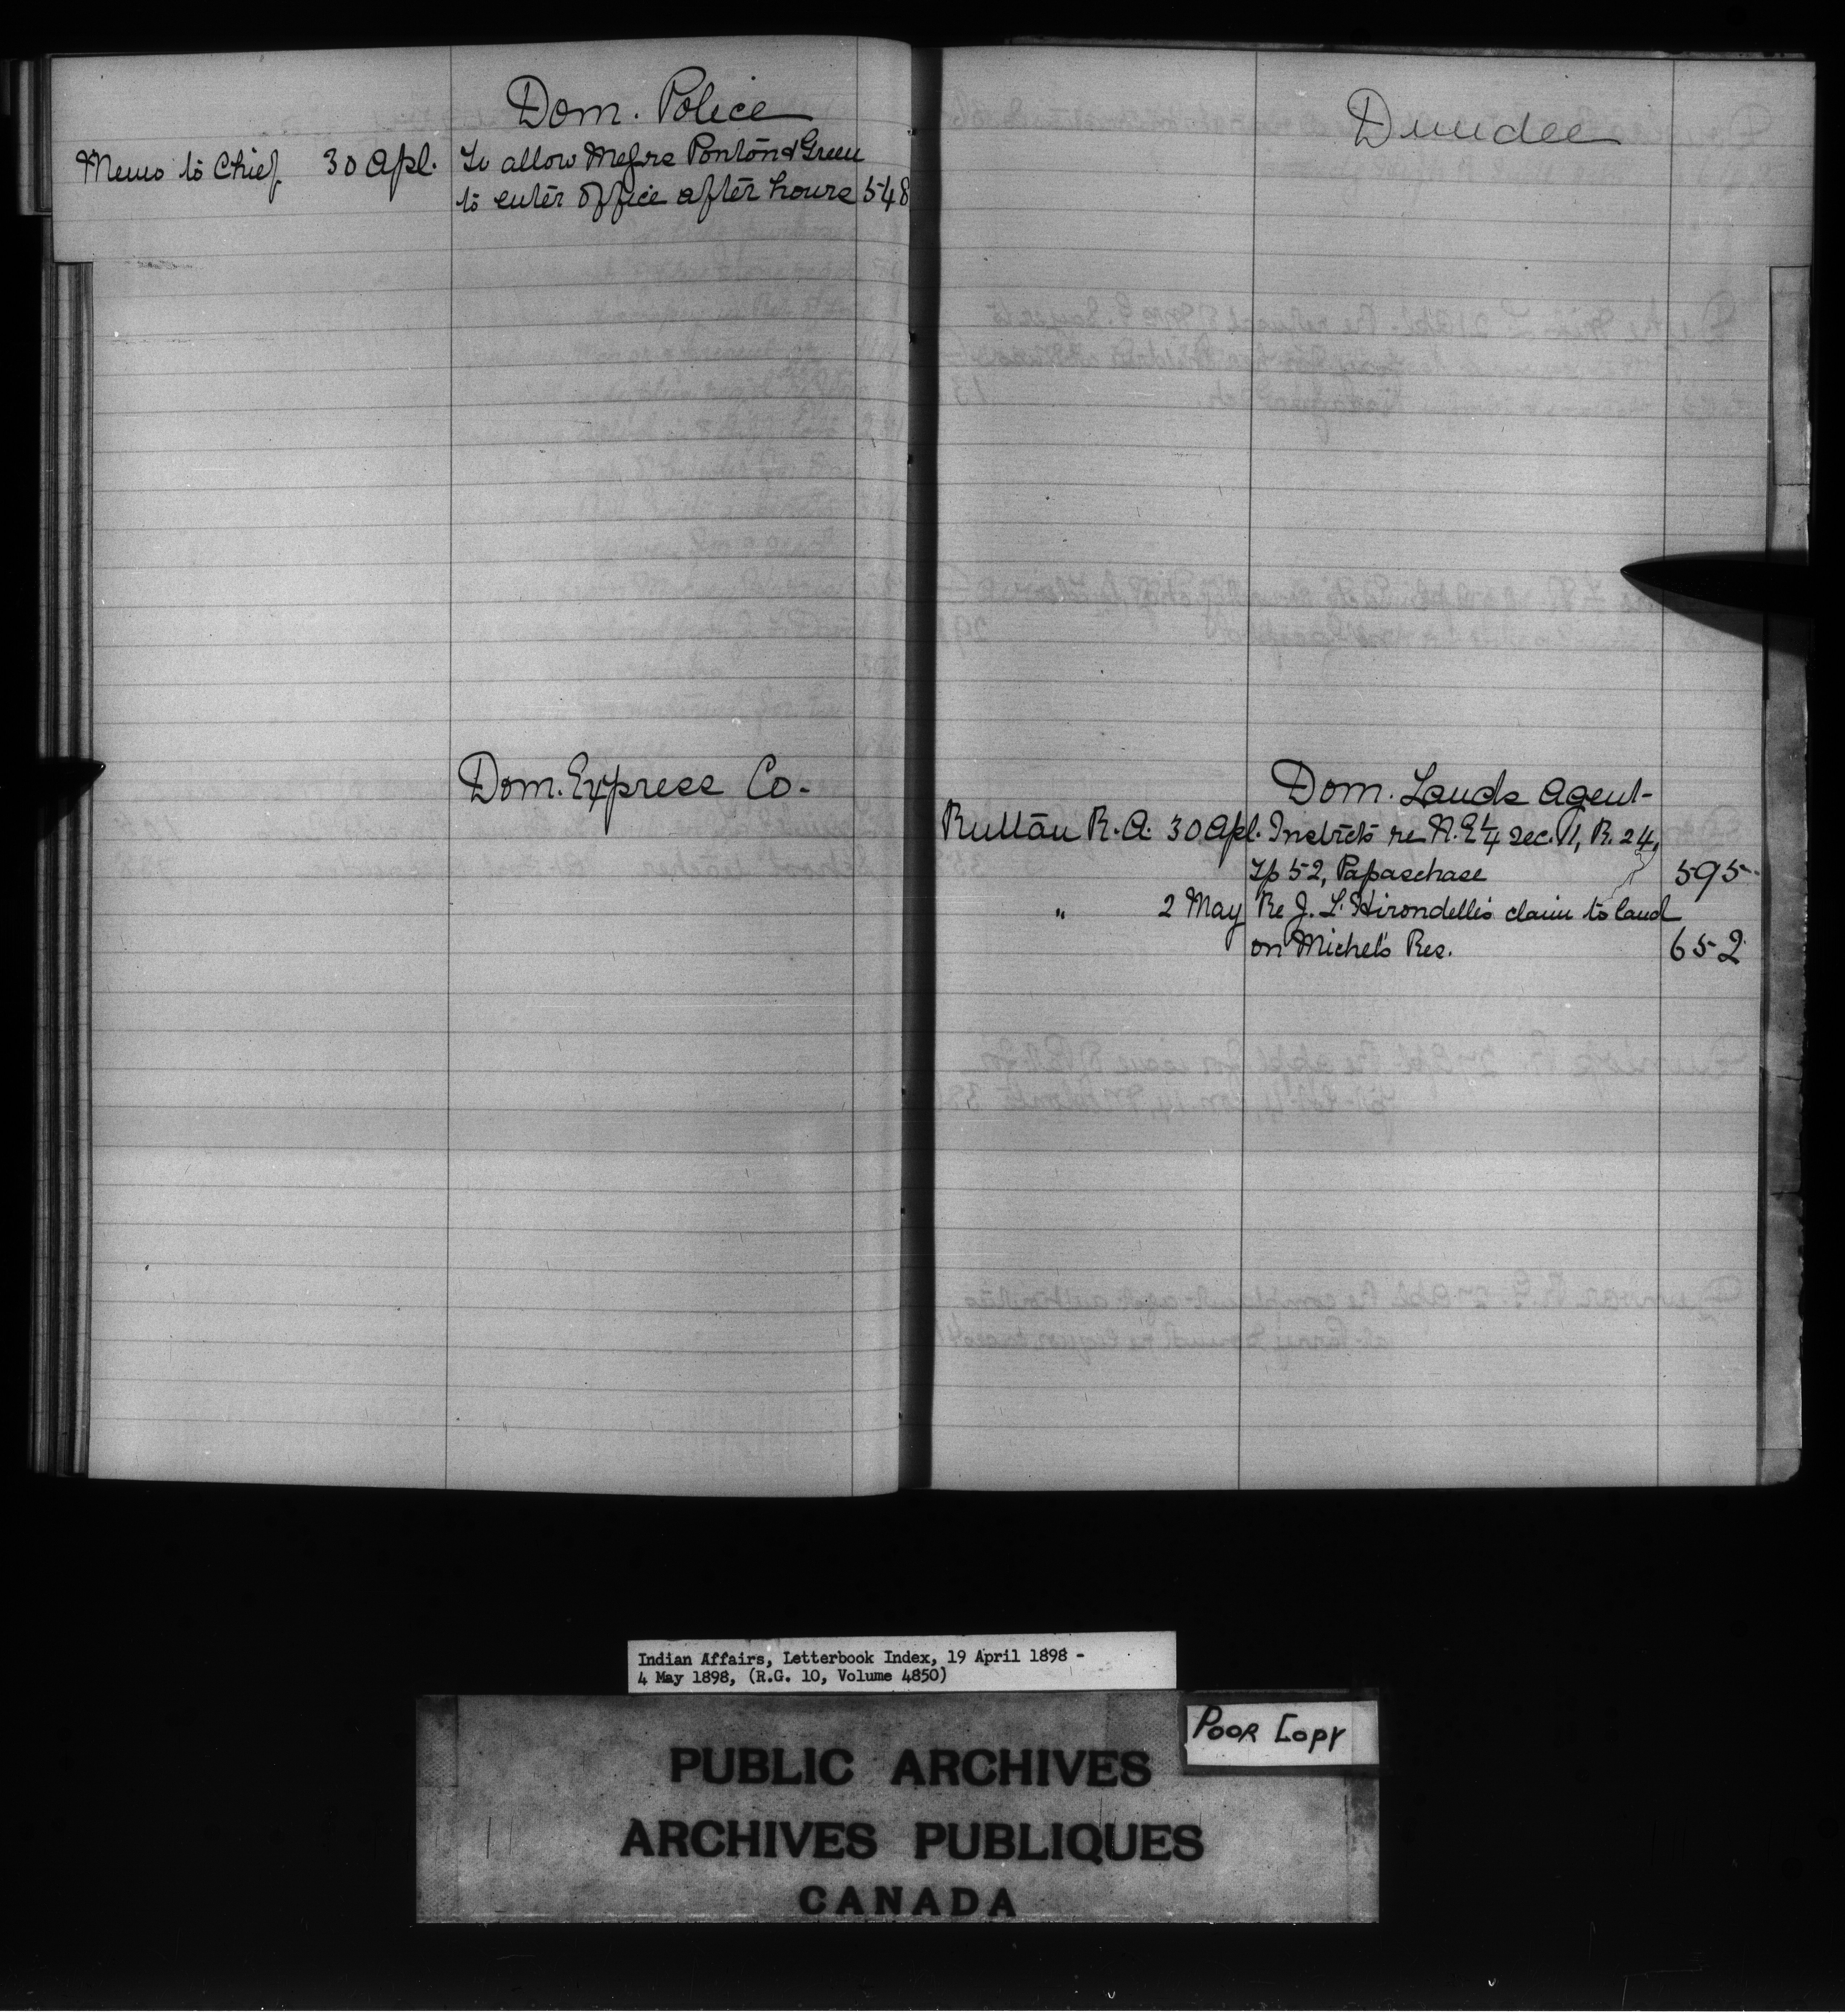 Dom. Police
Memo to Chief 30 Apl. To allow Messrs Ponton & Green
to enter office after hours 548
Dom. Express Co.
Dundee
Dom. Lands Agent
Ruttan R. A. 30 Apl. Instrcts re N.E 1/4 Sec. 11, R. 24,
Tp 52, Papaschase 595
" 2 May Re J. L'Hirondelle's claim to land
on Michel's Res. 652
Indian Affairs, Letterbook Index, 19 April 1898 -
4 May 1898, (R.G. 10, Volume 4850)
POOR COPY
PUBLIC ARCHIVES
ARCHIVES PUBLIQUES
CANADA